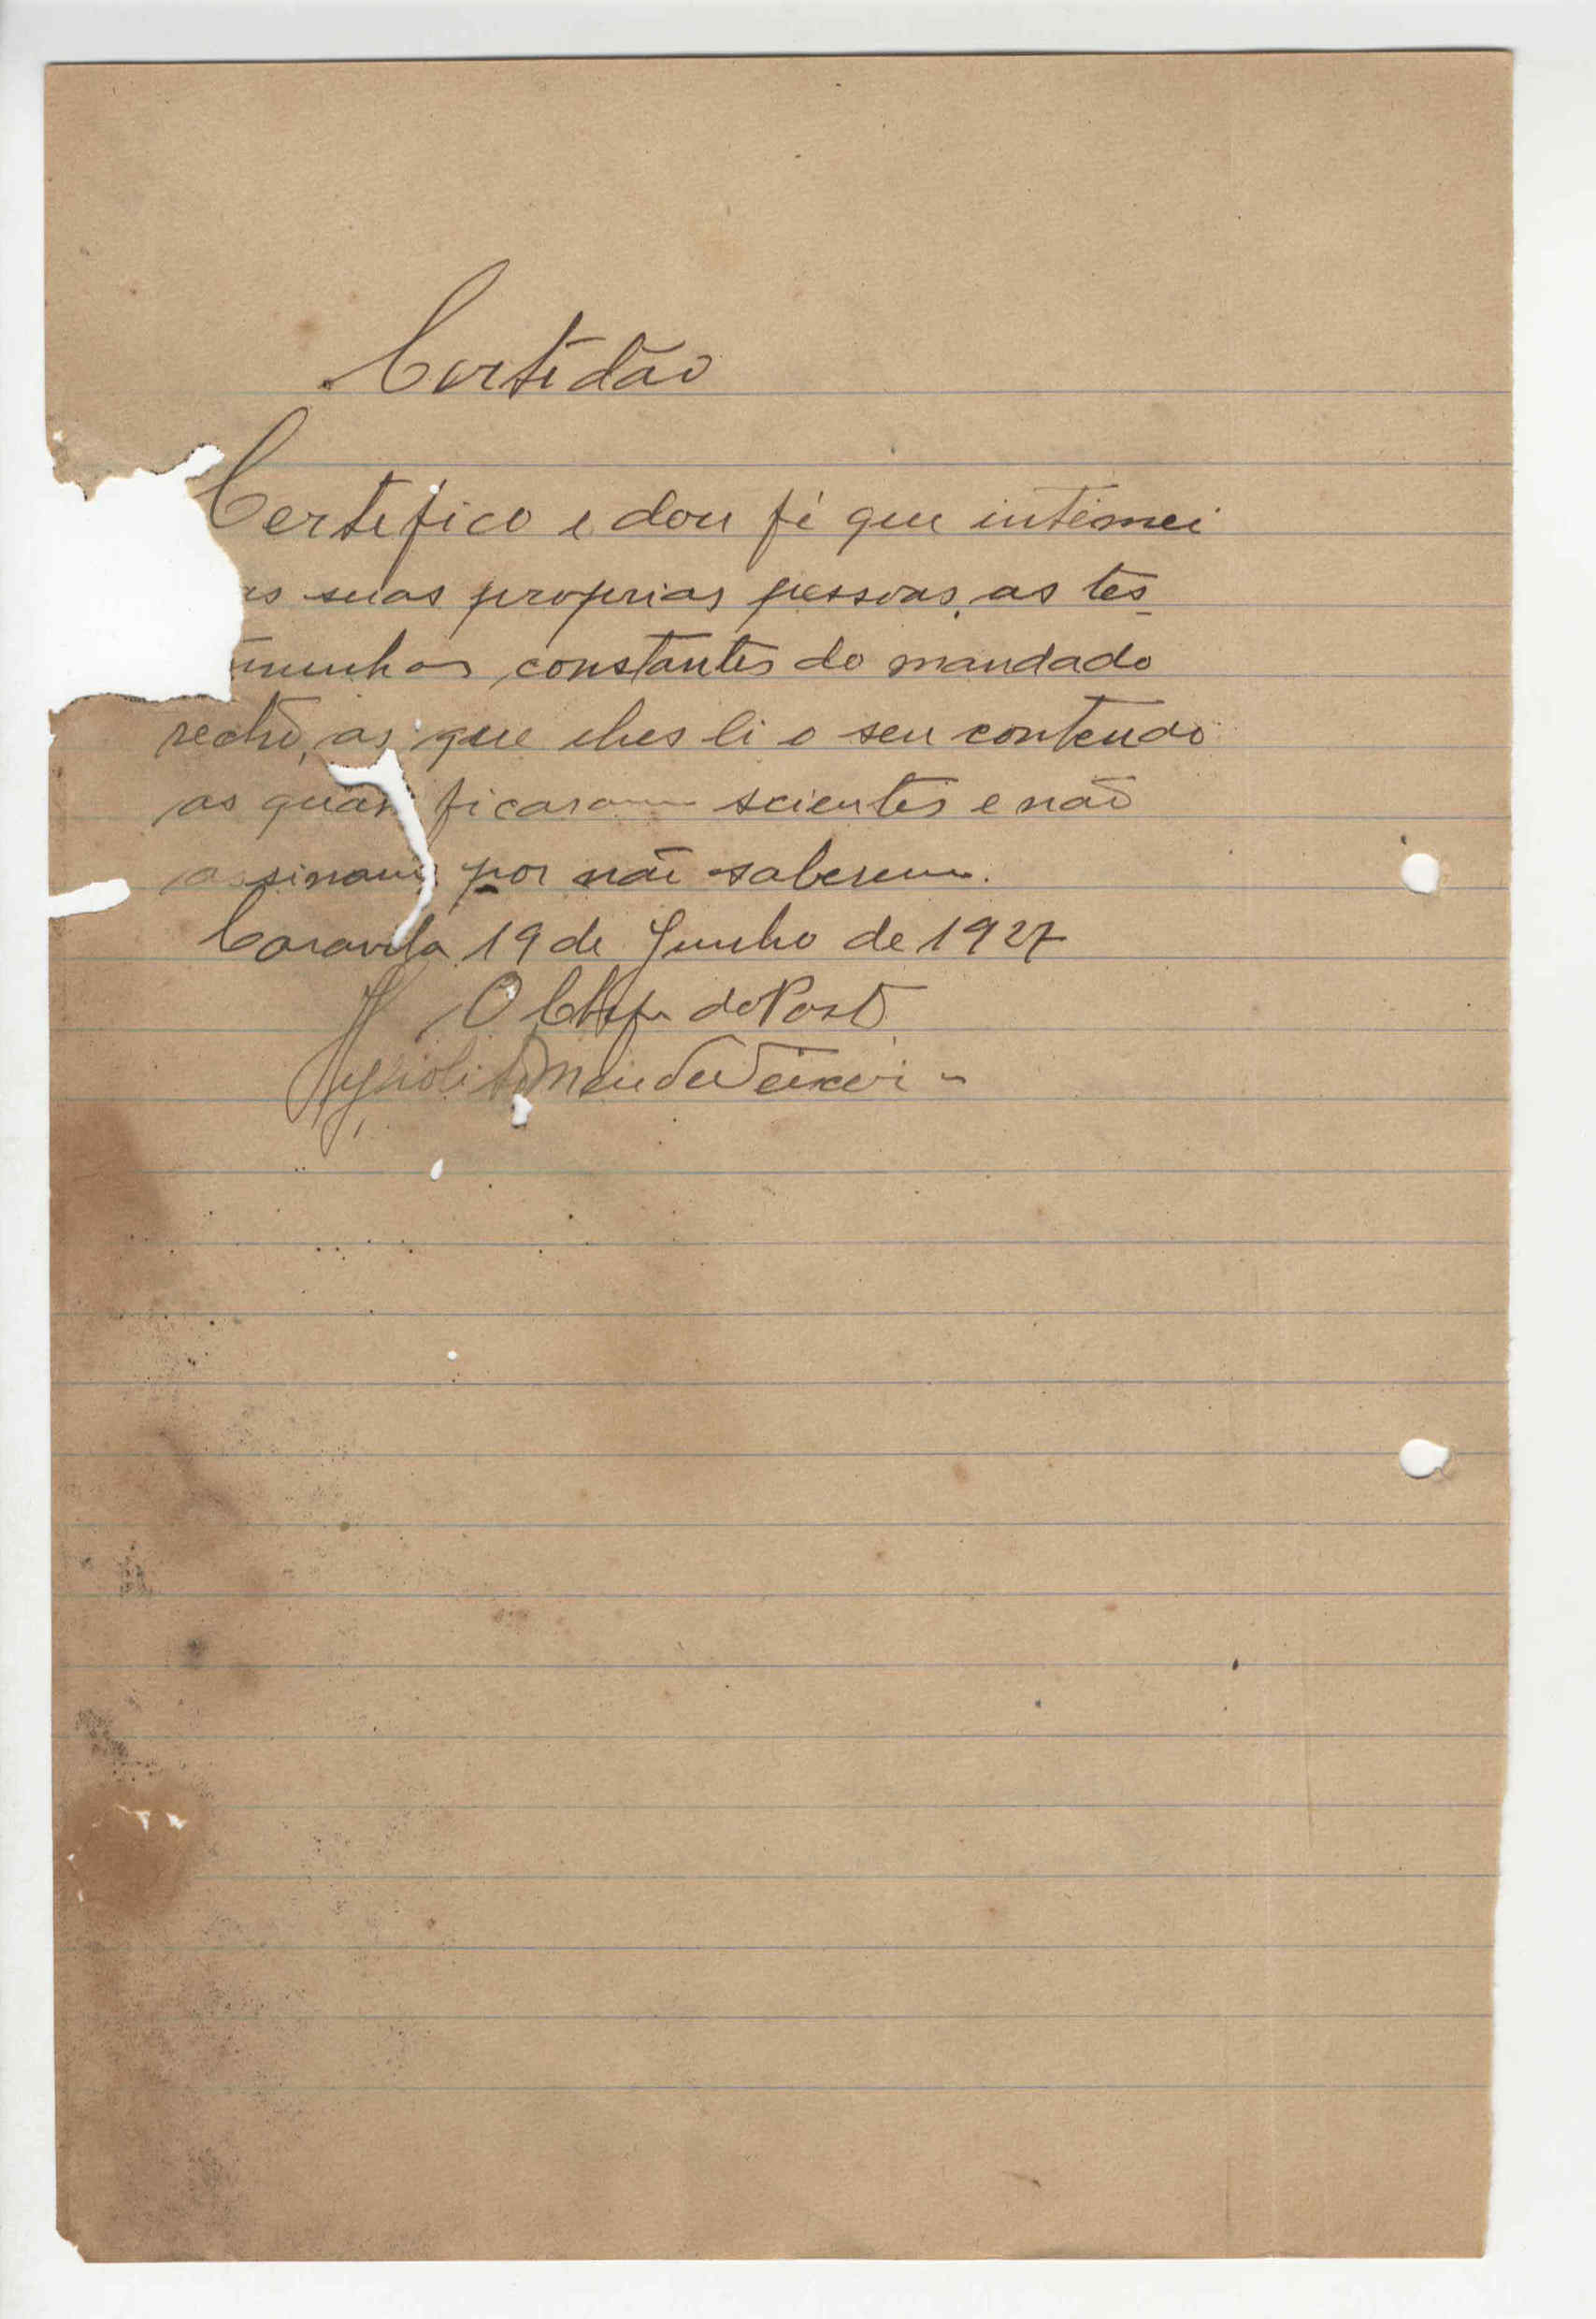 Certidão
Certefico e dou fé que intimei
as suas proprias pessoas, as tes-
munhas constantes do mandado
rectro, as que lhes li o seu conteudo
as quaes ficaram scientes e não
assinam por não saberem.
19 de Junho de 1927
O Chefe do Posto